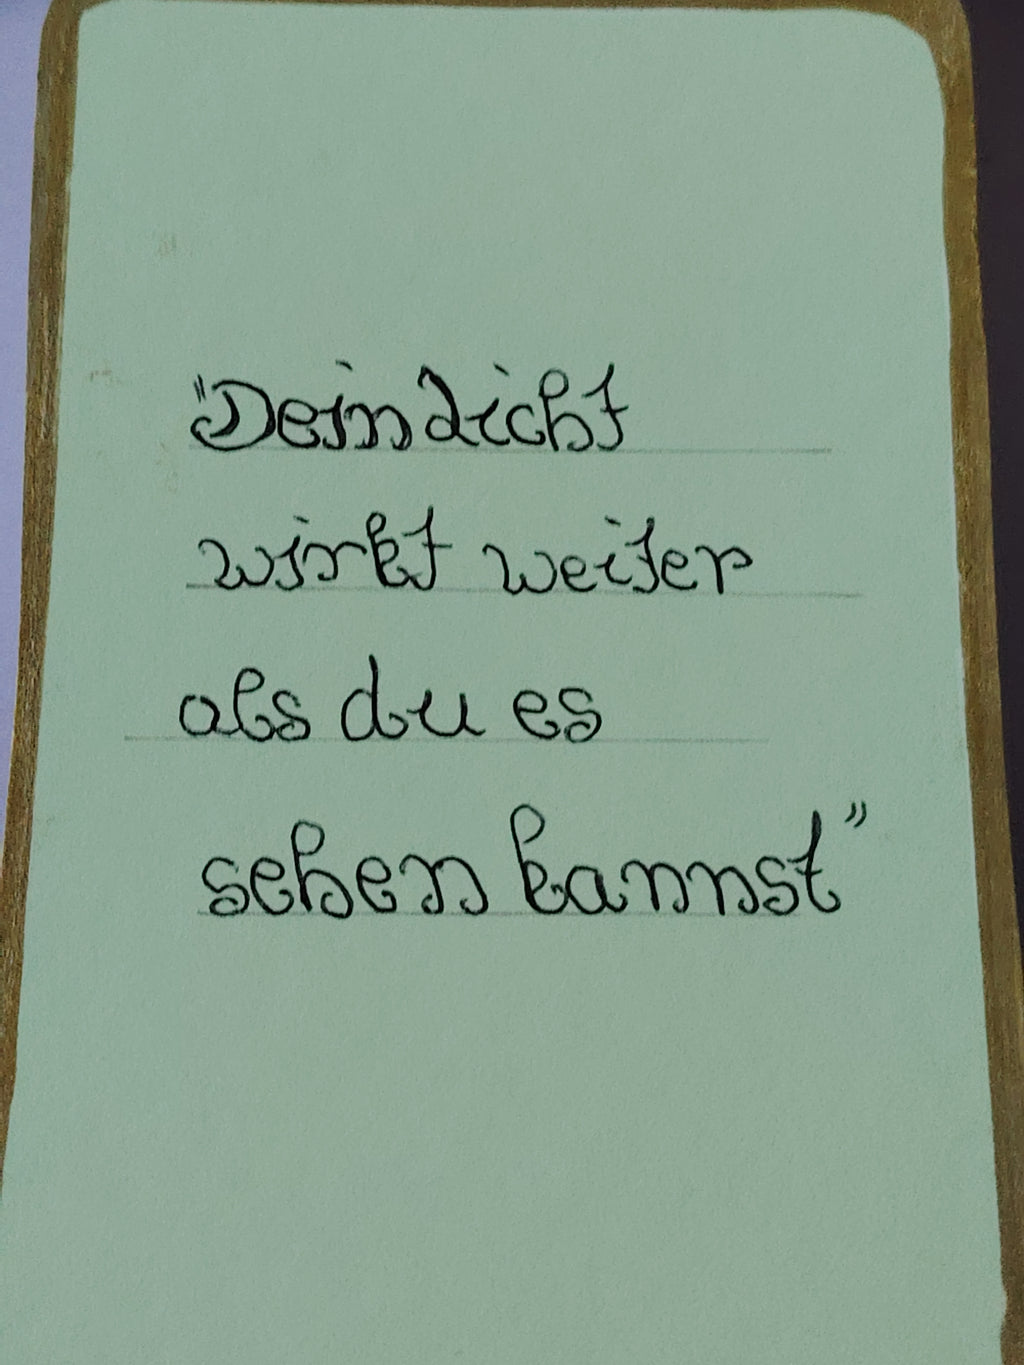 "Dein Licht
wirkt weiter
als du es
sehen kannst"